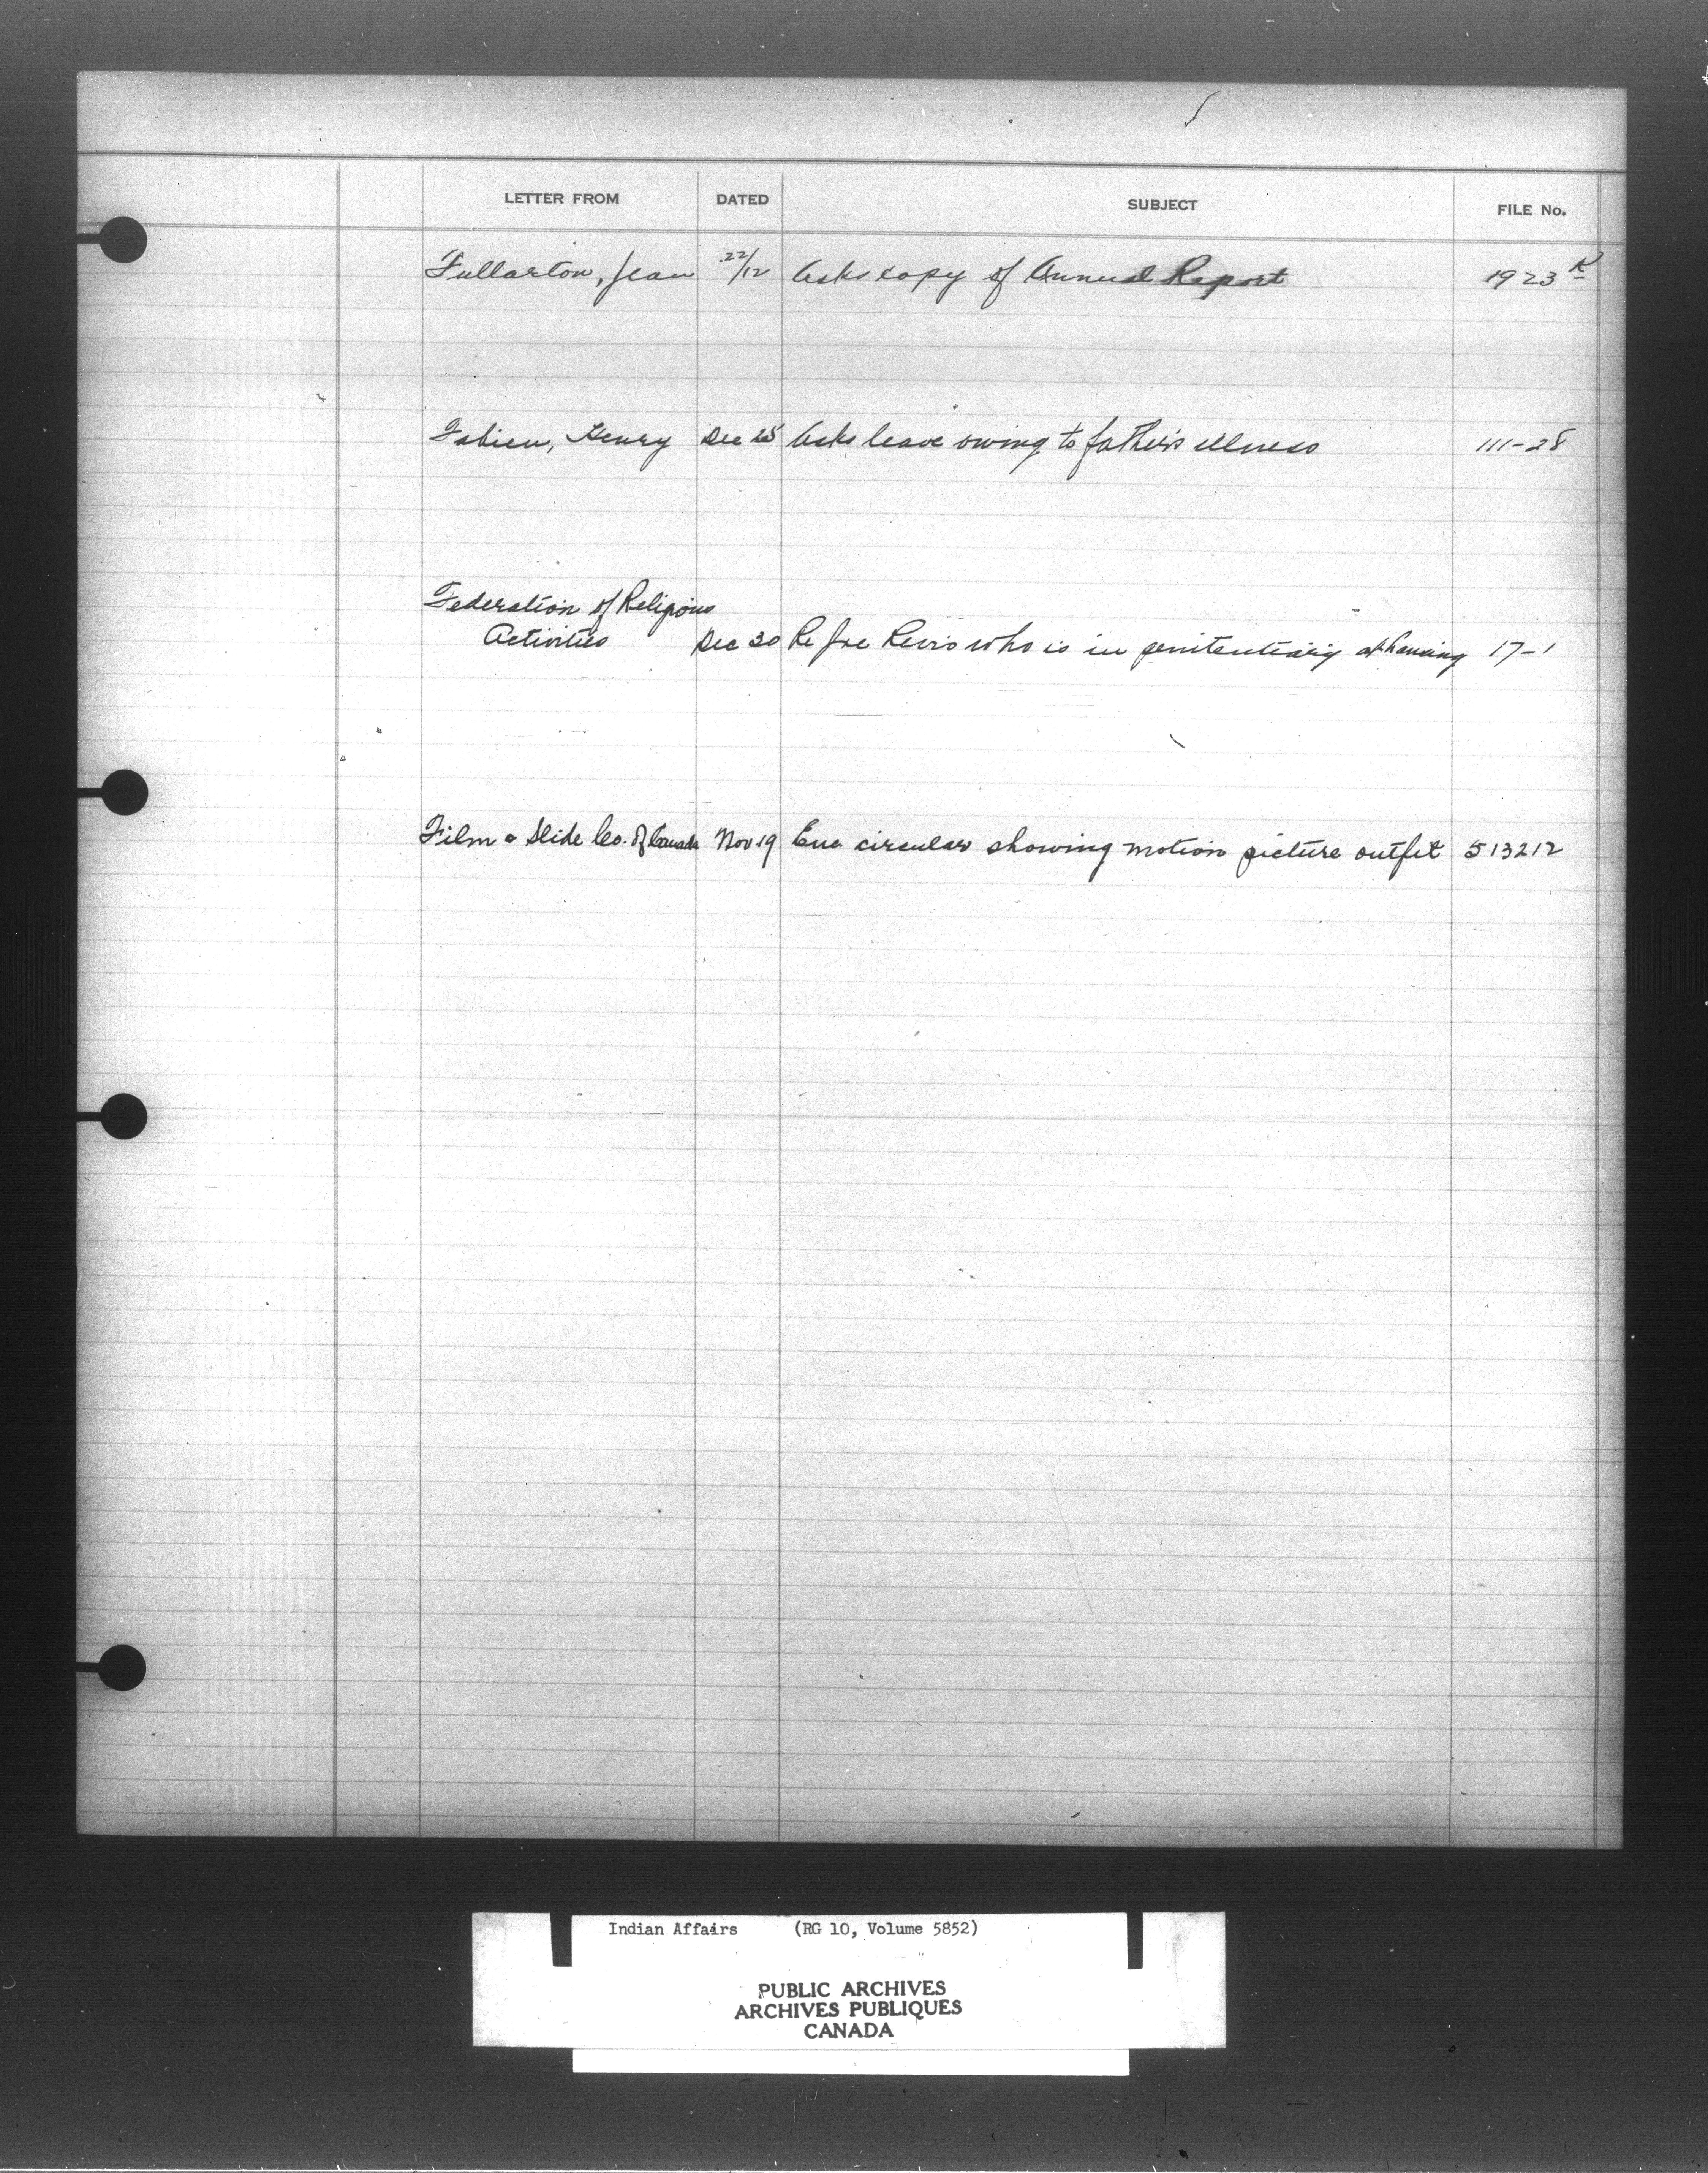 LETTER FROM DATED SUBJECT FILE No.
Fullarton, Jean 22/12 Asks copy of Annual Report 1923 K
Fabien, Henry Dec 25 Asks leave owing to father's illness 111-28
Federation of Religious
Activities Dec 30 Re Joe who is in penitentiary at Lansing 17-1
Film & Slide Co. of Canada Nov 19 Enc circular showing motion picture outfit 513212
Indian Affairs (RG 10, Volume 5852)
PUBLIC ARCHIVES
ARCHIVES PUBLIQUES
CANADA